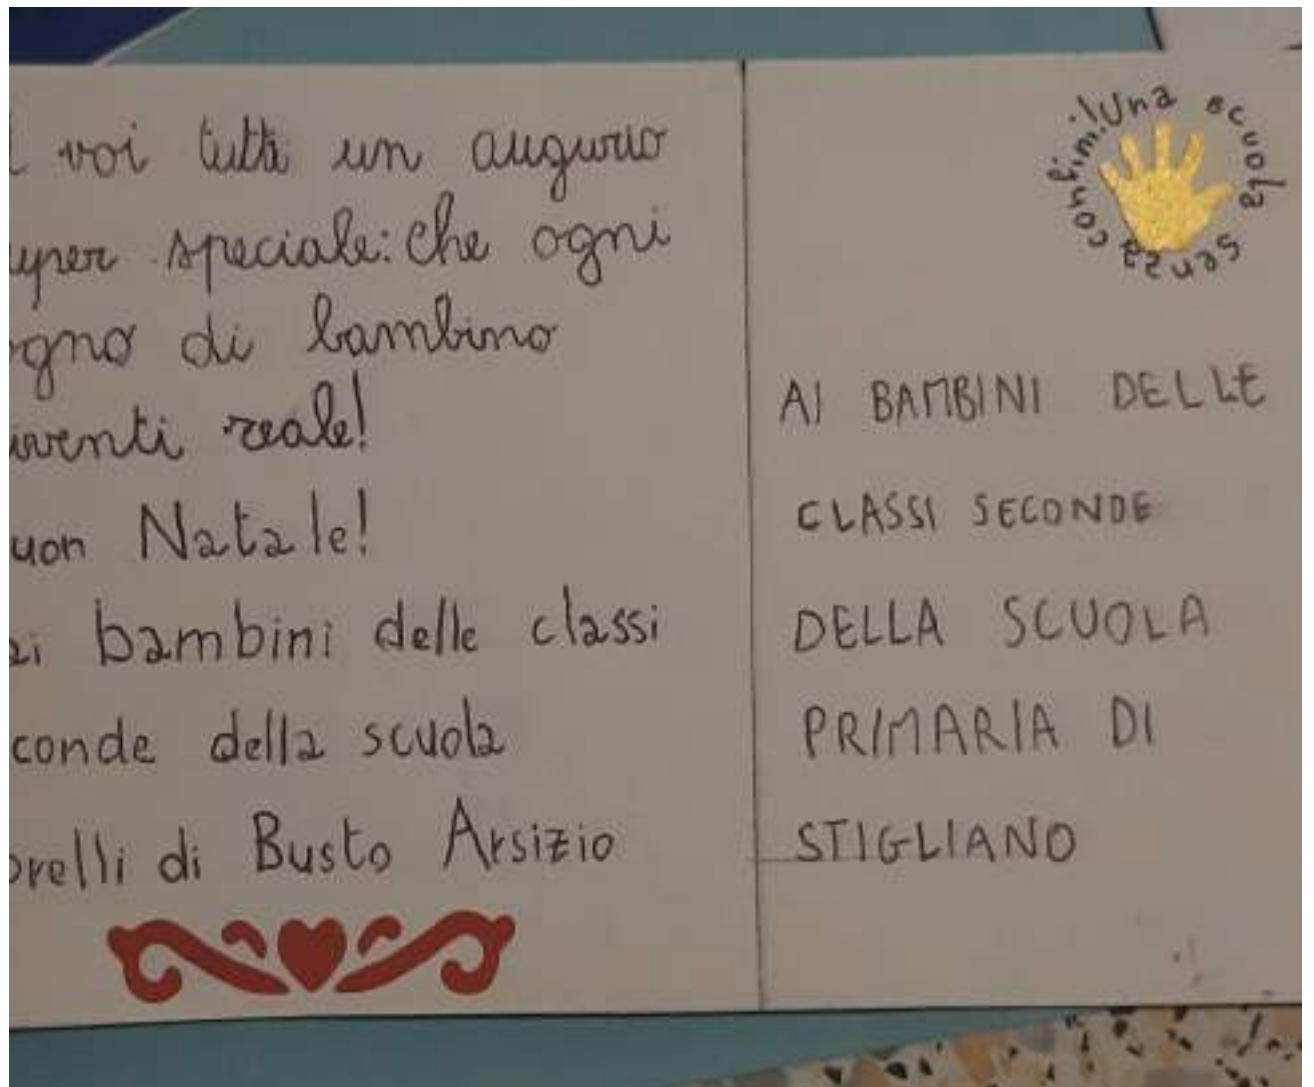 voi tutti un augurio
uper speciale: che ogni
ogno di bambino
iventi reale!
uon Natale!
ai bambini delle classi
conde della scuola
orelli di Busto Arsizio
Una scuola senza confini!
AI BAMBINI DELLE
CLASSI SECONDE
DELLA SCUOLA
PRIMARIA DI
STIGLIANO